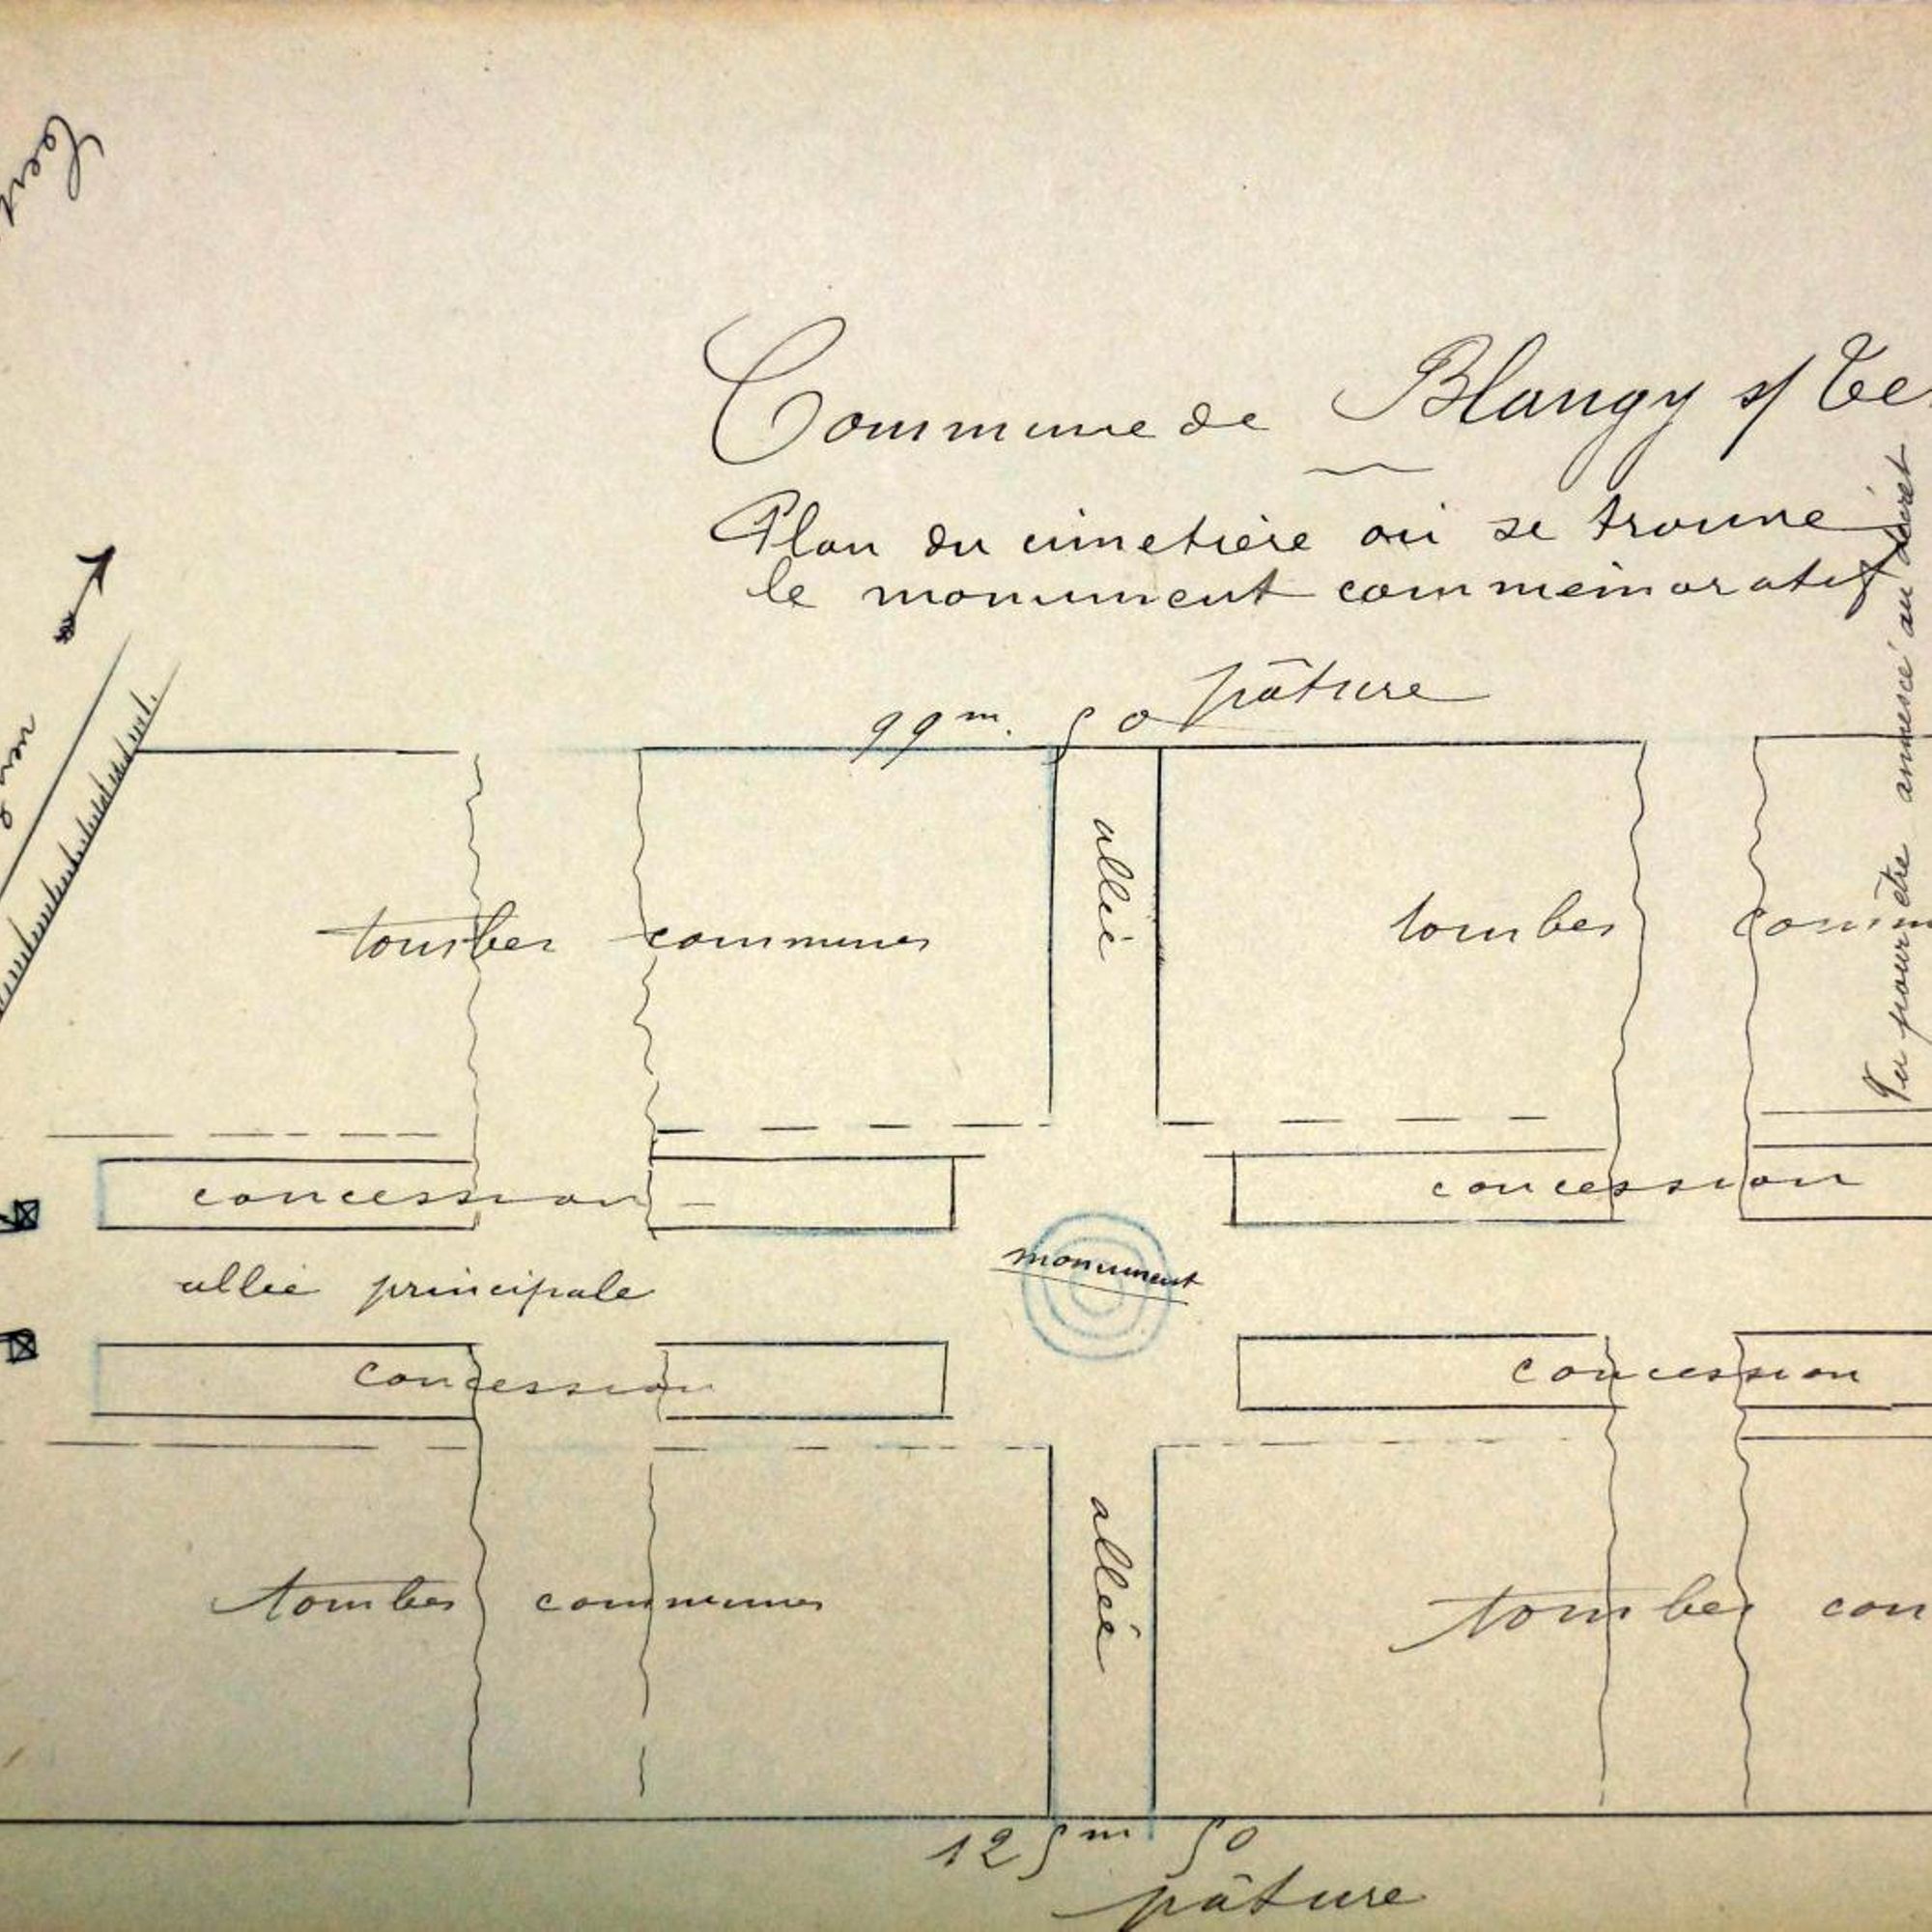 Commune de Blangy s/ Te
Plan du cimetière où se trouve
le monument commémoratif
Vu pour être annexé au décret
pâture
99m. 50
allée
tombes communes
tombes comm
concession
concession
monument
allée principale
concession
concession
allée
tombes communes
tombes com
125m 50
pâture